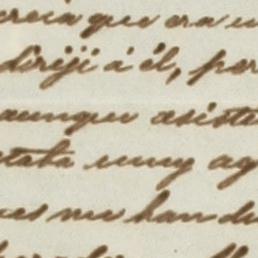 creia que era u
diriji á él, per
aunque asiste
staba muy ag
es me han di